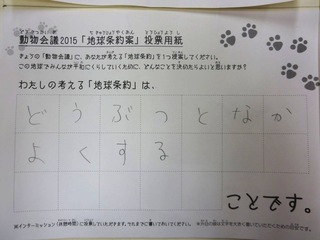 動物会議2015「地球条約案」投票用紙
きょうの「動物会議」に、あなたが考える「地球条約」を1つ提案してください。
この地球でみんなが平和にくらしていくために、どんなことを決めたらよいと思いますか?
わたしの考える「地球条約」は、
どうぶつとなか
よくする
ことです。